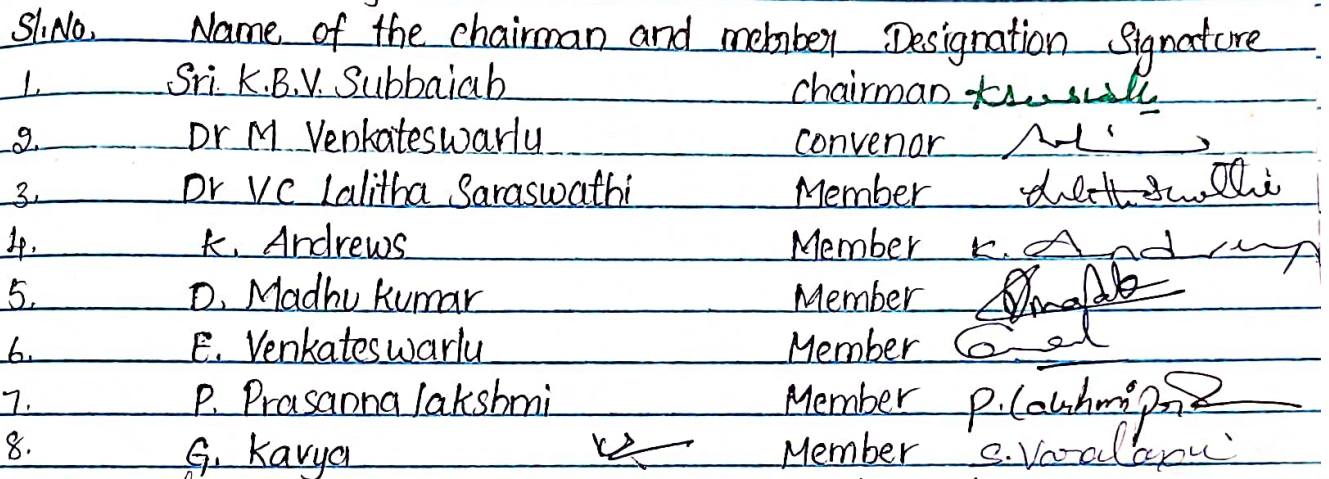 Sl.No. Name of the chairman and member Designation Signature
1. Sri. K.B.V. Subbaiah chairman
2. Dr M Venkateswarlu convenor
3. Dr VC Lalitha Saraswathi Member
4. K. Andrews Member K. Andrews
5. D. Madhu Kumar Member
6. E. Venkateswarlu Member
7. P. Prasanna lakshmi Member P. Lakshmi
8. G. Kavya Member